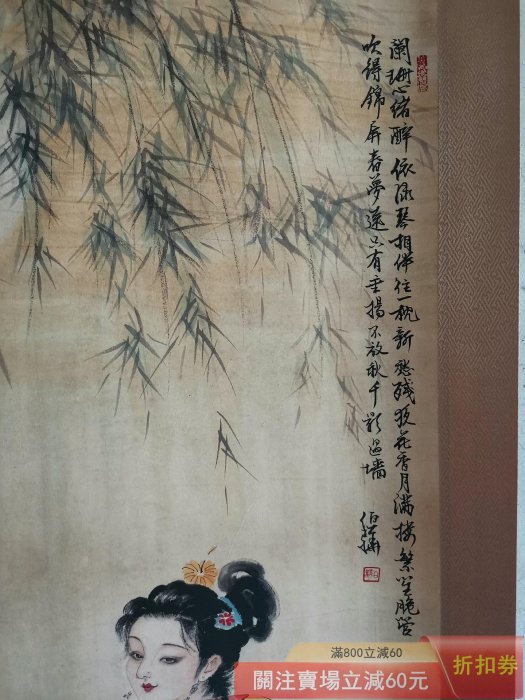 阑珊心绪醉依绿琴相伴住一枕新愁残夜花香月满楼繁笙脆管
吹得锦屏春梦遠只有垂揚不放秋千影过墙
滿800立減60
關注賣場立減60元
折扣券